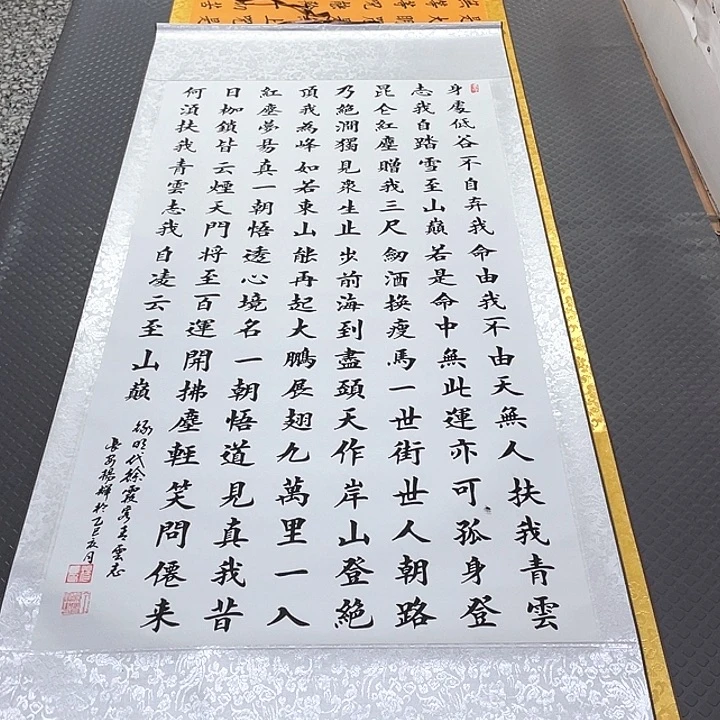 身處低谷不自弃我命由我不由天無人扶我青雲
志我自踏雪至山巔若是命中無此運亦可孤身登
昆仑紅塵贈我三尺劒酒換瘦馬一世街世人朝路
乃絕澗獨見衆生止步前海到盡頭天作岸山登絕
頂我為峰如若東山能再起大鵬展翅九萬里一入
紅塵夢易真一朝悟透心境名一朝悟道見真我昔
日枷鎖皆云煙天門將至百運開拂塵輕笑問僊来
何湏扶我青雲志我自凌云至山巔
録明代徐霞客青雲志
長安楊輝於乙巳月